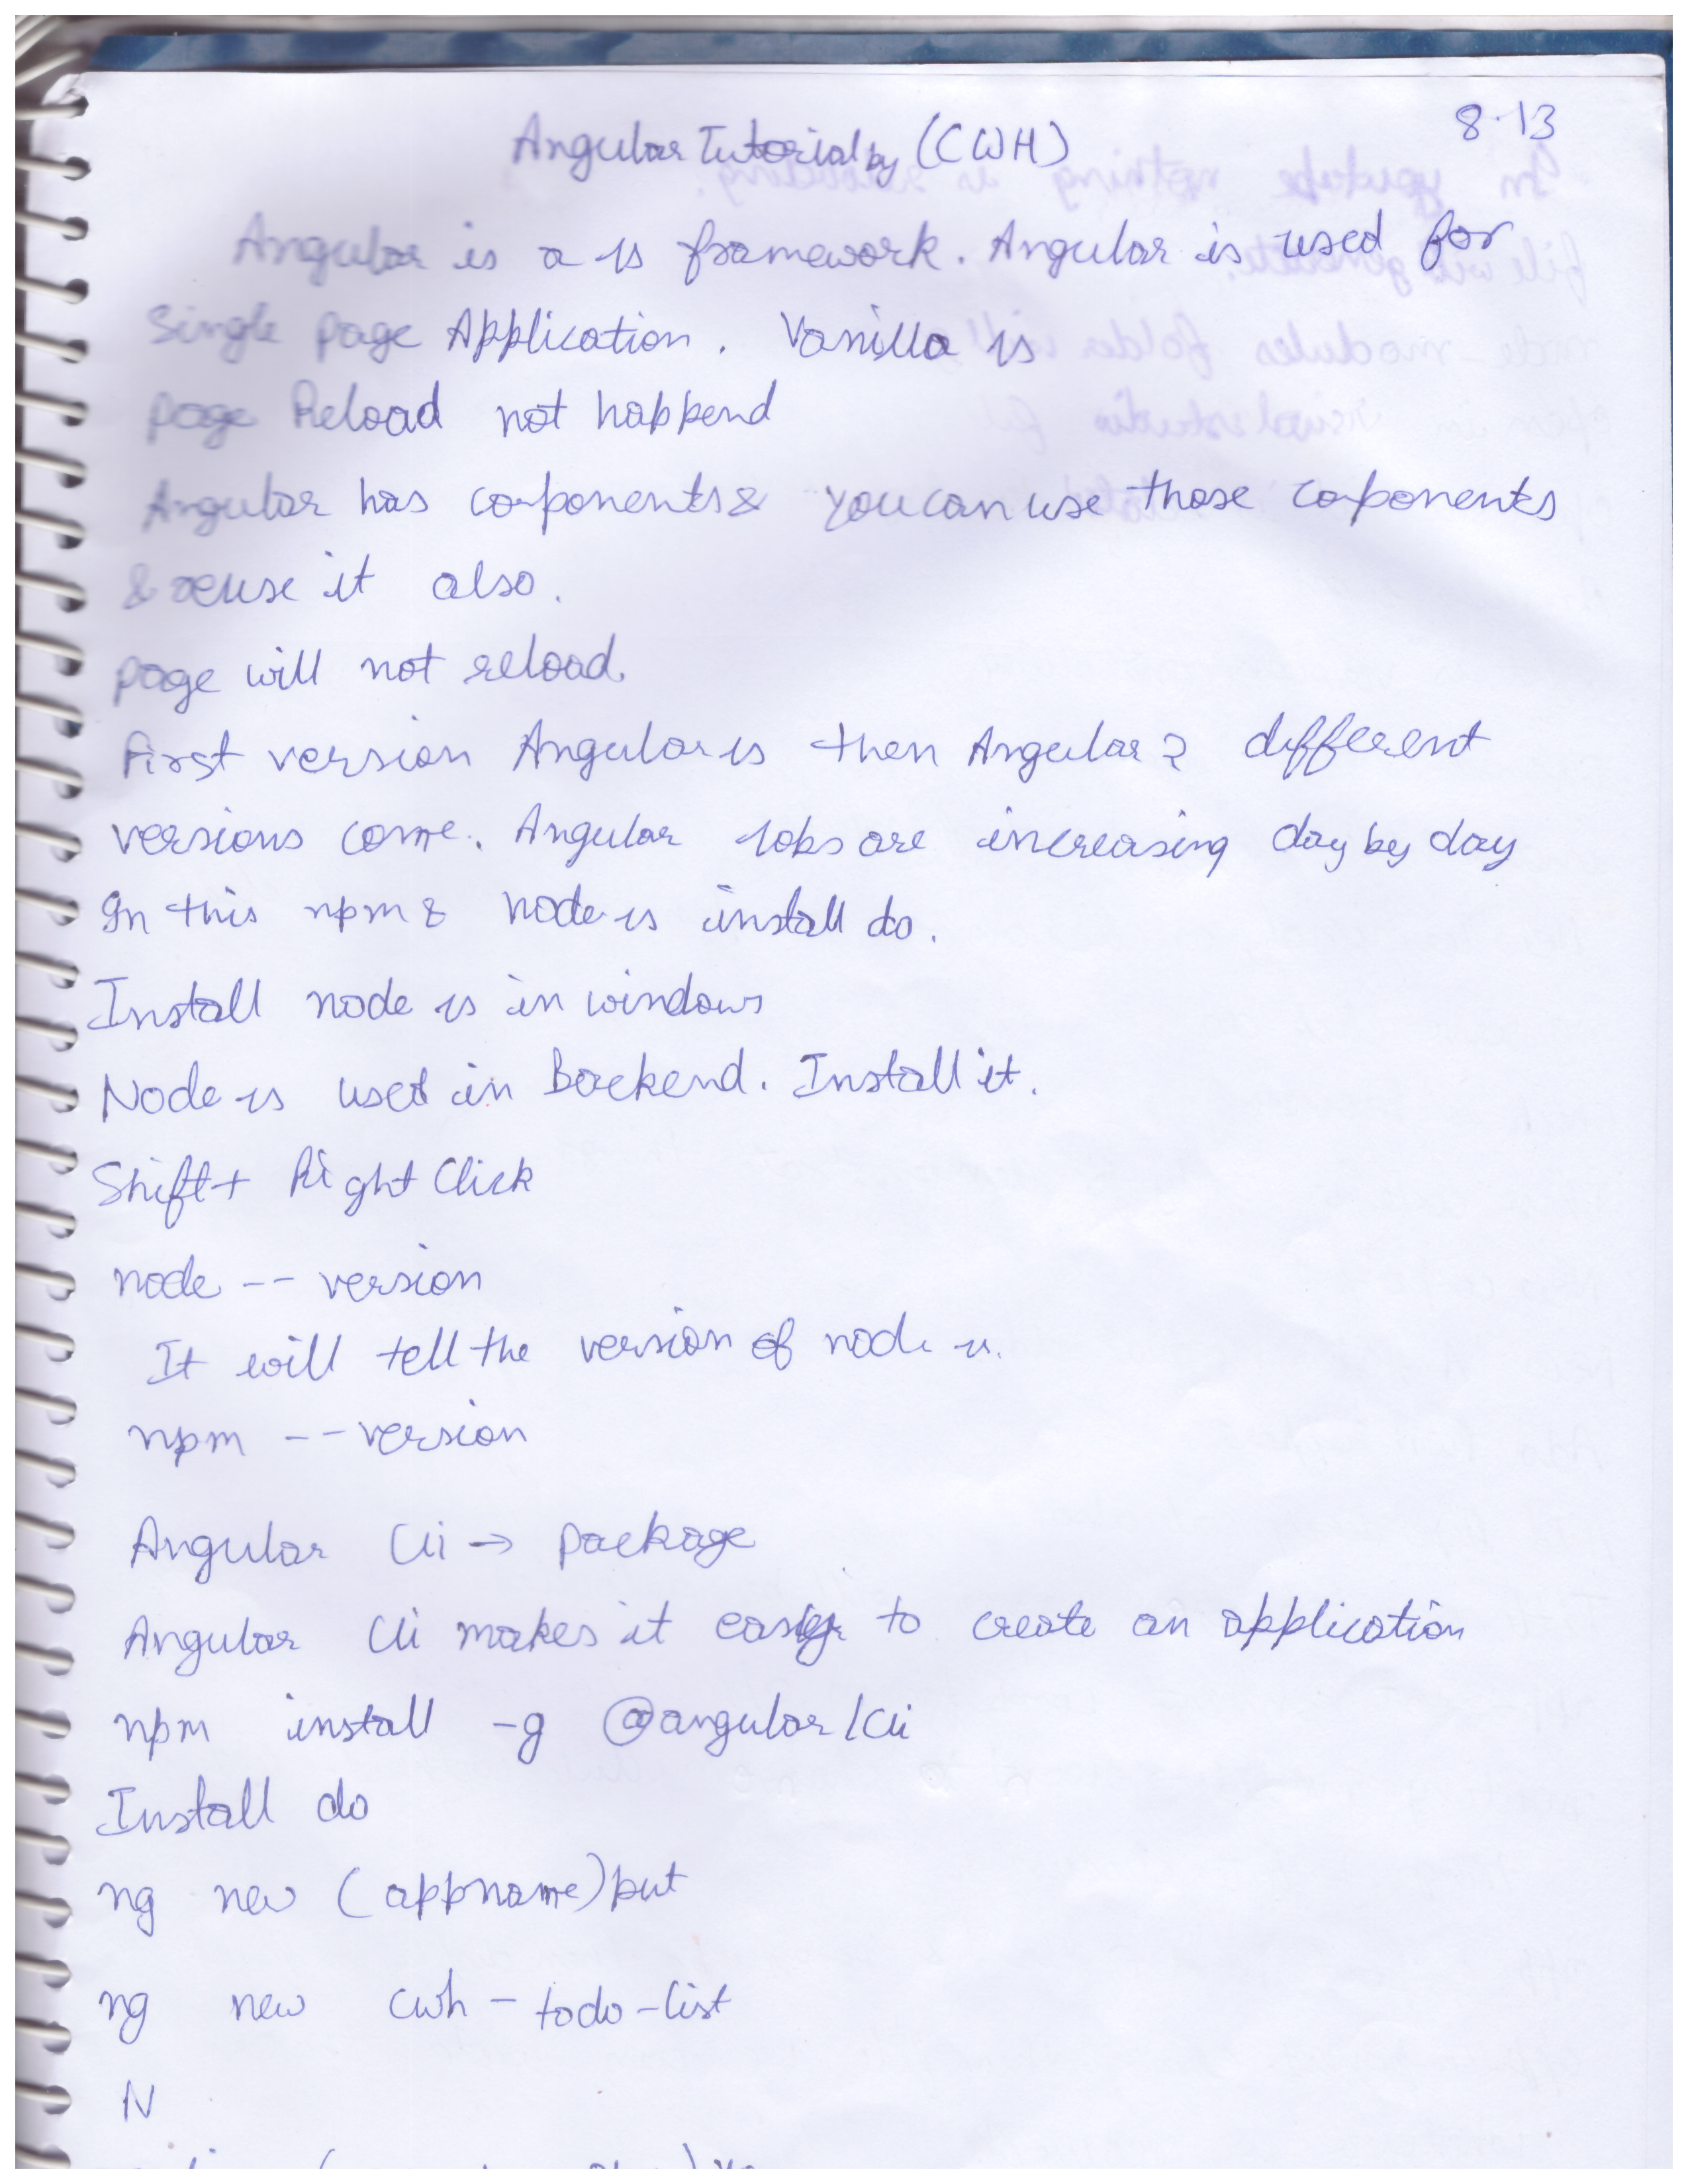 8.13
Angular Tutorial by (CWH)
Angular is a Js framework. Angular is used for
Single page Application. Vanilla Js
page Reload not happend
Angular has components & you can use those components
& reuse it also.
page will not reload.
First version Angular Js then Angular 2 different
versions come. Angular Jobs are increasing day by day
In this npm & node Js install do.
Install node Js in windows
Node Js used in Backend. Install it.
Shift + Right Click
node -- version
It will tell the version of node Js.
npm -- version
Angular Cli → package
Angular Cli makes it easy to create an application
npm install -g @angular/cli
Install do
ng new (appname) put
ng new cwh - todo - list
N